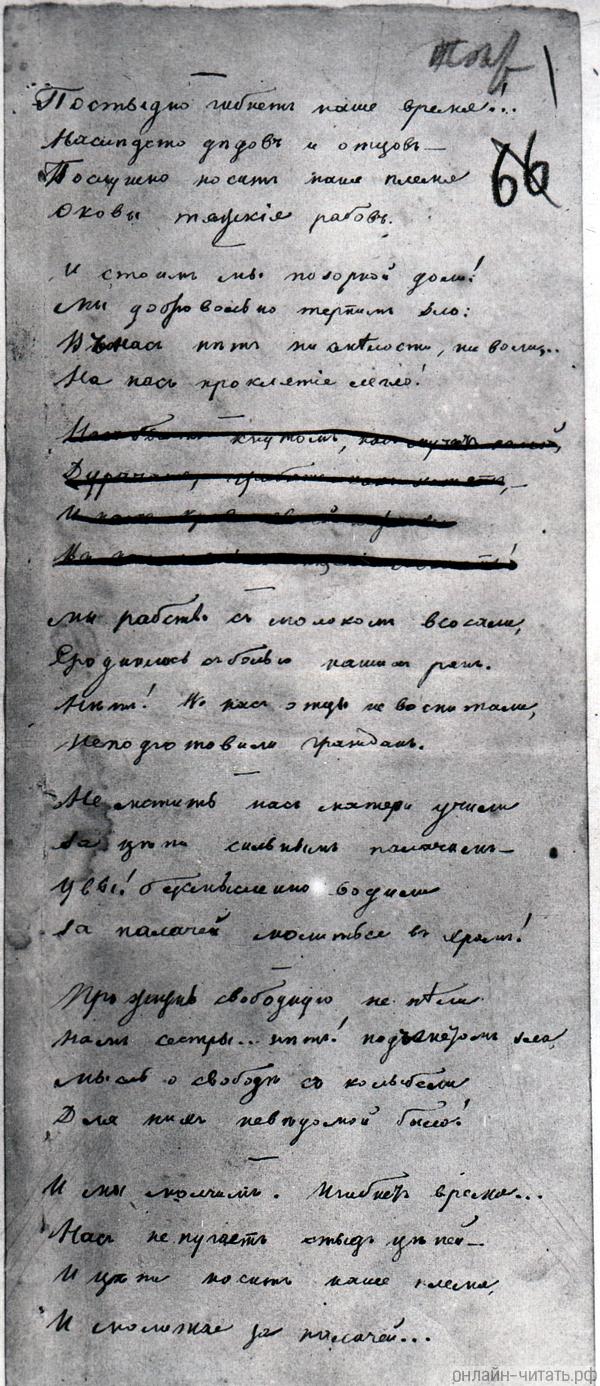 66
Постыдно гибнетъ наше время!..
Наслѣдство дѣдовъ и отцовъ —
Послушно носитъ наше племя
Оковы тяжкія рабовъ.
И стоимъ мы позорной доли!
Мы добровольно терпимъ зло:
Въ насъ нѣтъ ни смѣлости, ни воли...
На насъ проклятіе легло!
кнутомъ,
Дурачатъ, грабятъ
И
Мы рабство съ молокомъ всосали,
Сроднились съ болью нашихъ ранъ.
Нѣтъ! Не насъ отцы не воспитали,
Не подготовили гражданъ.
Не мстить насъ матери учили
За цѣпи сильнымъ палачамъ —
Увы! безсмысленно водили
За палачей молиться въ храмъ!
Про жизнь свободную не пѣли
Намъ сестры... нѣтъ! подъ гнетомъ зла
Мысль о свободѣ съ колыбели
Для нихъ невѣдомой была!
И мы молчимъ. И гибнетъ время...
Насъ не пугаетъ стыдъ цѣпей —
И цѣпи носитъ наше племя
И молится за палачей...
онлайн-читать.рф